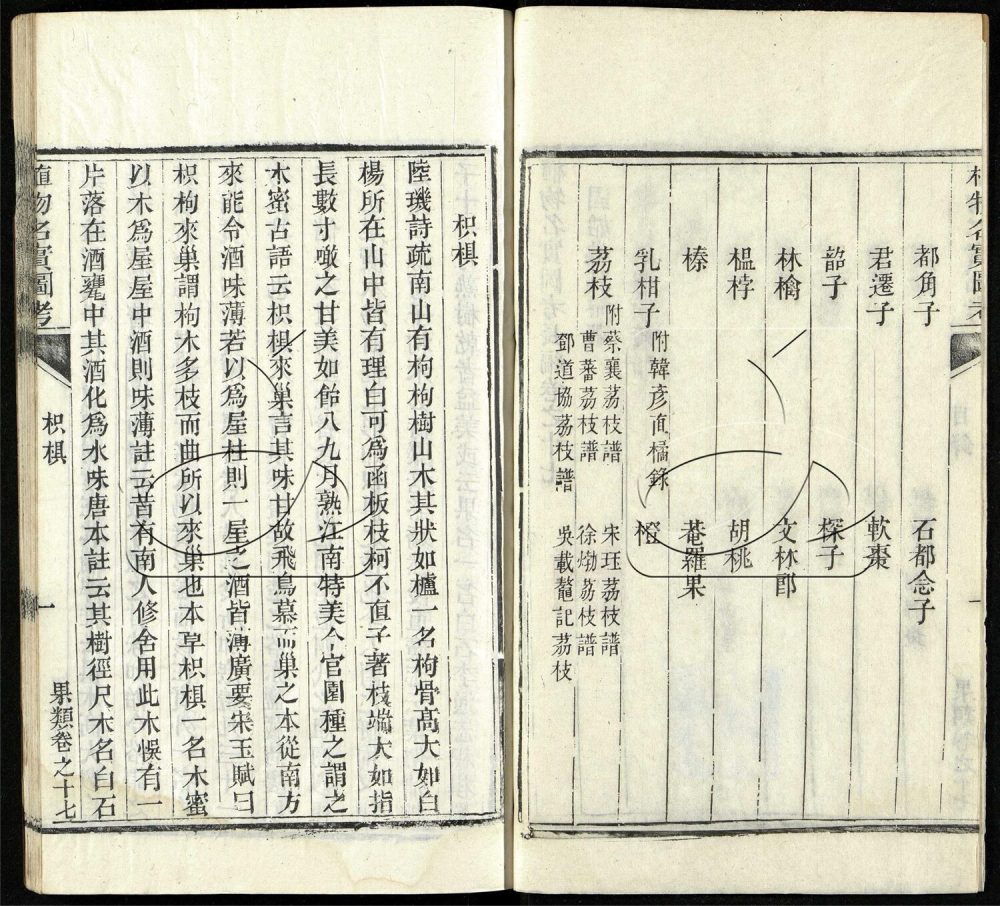 都角子 石都念子
君遷子 軟棗
韶子 探子
林檎 文林郎
榲桲 胡桃
榛 菴羅果
乳柑子 附韓彥直橘錄 橙
荔枝 附蔡襄荔枝譜 宋珏荔枝譜
曹蕃荔枝譜 徐𤊹荔枝譜
鄧道協荔枝譜 吳載鼇記荔枝
枳椇
陸璣詩疏南山有枸枸樹山木其狀如櫨一名枸骨高大如白
楊所在山中皆有理白可爲函板枝柯不直子著枝端大如指
長數寸噉之甘美如飴八九月熟江南特美今官園種之謂之
木蜜古語云枳椇來巢言其味甘故飛鳥慕而巢之本從南方
來能令酒味薄若以爲屋柱則一屋之酒皆薄廣要宋玉賦曰
枳枸來巢謂枸木多枝而曲所以來巢也本草枳椇一名木蜜
以木爲屋屋中酒則味薄註云昔有南人修舍用此木悞有一
片落在酒甕中其酒化爲水味唐本註云其樹徑尺木名白石
植物名實圖考 枳椇 一 果類卷之十七